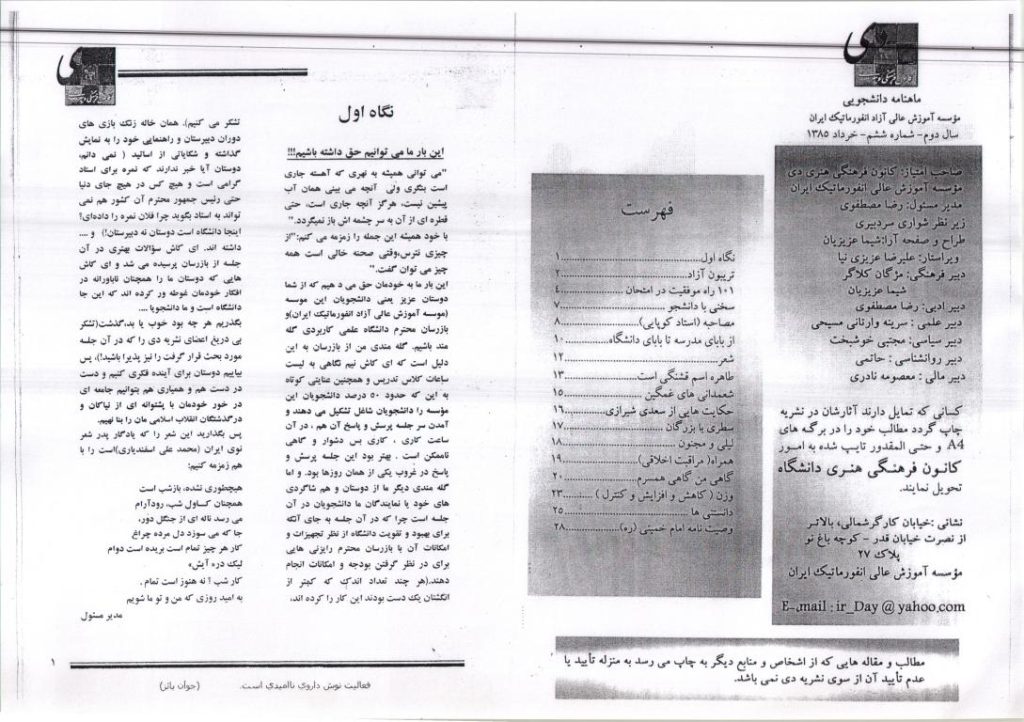 ماهنامه دانشجویی
مؤسسه آموزش عالی آزاد انفورماتیک ایران
سال دوم- شماره ششم- خرداد ۱۳۸۵
صاحب امتیاز: کانون فرهنگی هنری دی
مؤسسه آموزش عالی انفورماتیک ایران
مدیر مسئول: رضا مصطفوی
زیر نظر شورای سردبیری
طراح و صفحه آرا:شیما عزیزیان
ویراستار: علیرضا عزیزی نیا
دبیر فرهنگی: مژگان کلاگر
شیما عزیزیان
دبیر ادبی: رضا مصطفوی
دبیر علمی : سرینه وارتانی مسیحی
دبیر سیاسی: مجتبی خوشبخت
دبیر روانشناسی : حاتمی
دبیر مالی : معصومه نادری
کسانی که تمایل دارند آثارشان در نشریه
چاپ گردد مطالب خود را در برگه های
A4 و حتی المقدور تایپ شده به امور
کانون فرهنگی هنری دانشگاه
تحویل نمایند.
نشانی :خیابان کارگرشمالی، بالاتر
از نصرت خیابان قدر - کوچه باغ نو
پلاک ۲۷
مؤسسه آموزش عالی انفورماتیک ایران
E-mail : ir_Day @ yahoo.com
فهرست
نگاه اول..........۱
تریبون آزاد..........۲
۱۰۱ راه موفقیت در امتحان..........۴
سخنی با دانشجو..........۷
مصاحبه (استاد کوپایی)..........۸
از بابای مدرسه تا بابای دانشگاه..........۱۰
شعر..........۱۲
طاهره اسم قشنگی است..........۱۳
شعمدانی های غمگین..........۱۵
حکایت هایی از سعدی شیرازی..........۱۶
سطری با بزرگان..........۱۷
لیلی و مجنون..........۱۸
همراه( مراقبت اخلاقی)..........۱۹
گاهی من گاهی همسرم..........۲۰
وزن ( کاهش و افزایش و کنترل )..........۲۳
دانستنی ها..........۲۵
وصیت نامه امام خمینی (ره)..........۲۸
مطالب و مقاله هایی که از اشخاص و منابع دیگر به چاپ می رسد به منزله تأیید یا
عدم تأیید آن از سوی نشریه دی نمی باشد.
نگاه اول
این بار ما می توانیم حق داشته باشیم!!!
"می توانی همیشه به نهری که آهسته جاری
است بنگری ولی آنچه می بینی همان آب
پیشین نیست، هرگز آنچه جاری است، حتی
قطره ای از آن به سر چشمه اش باز نمیگردد."
با خود همیشه این جمله را زمزمه می کنیم:"از
چیزی نترس،وقتی صحنه خالی است همه
چیز می توان گفت."
این بار ما به خودمان حق می د هیم که از شما
دوستان عزیز یعنی دانشجویان این موسسه
(موسسه آموزش عالی آزاد انفورماتیک ایران)و
بازرسان محترم دانشگاه علمی کاربردی گله
مند باشیم. گله مندی من از بازرسان به این
دلیل است که ای کاش نیم نگاهی به لیست
ساعات کلاس تدریس و همچنین عنایتی کوتاه
به این که حدود ۵۰ درصد دانشجویان این
مؤسسه را دانشجویان شاغل تشکیل می دهند و
آمدن سر جلسه پرسش و پاسخ آن هم ، در آن
ساعت کاری ، کاری بس دشوار و گاهی
ناممکن است . بهتر بود این جلسه پرسش و
پاسخ در غروب یکی از همان روزها بود. و اما
گله مندی دیگر ما از دوستان و هم شاگردی
های خود یا نمایندگان ما دانشجویان در آن
جلسه است چرا که در آن جلسه به جای آنکه
برای بهبود و تقویت دانشگاه از نظر تجهیزات و
امکانات آن با بازرسان محترم رایزنی هایی
برای در نظر گرفتن بودجه و امکانات انجام
دهند.(هر چند تعداد اندک که کمتر از
انگشتان یک دست بودند این کار را کرده اند،
تشکر می کنیم). همان خاله زنک بازی های
دوران دبیرستان و راهنمایی خود را به نمایش
گذاشته و شکایاتی از اساتید ( نمی دانم،
دوستان آیا خبر ندارند که نمره برای استاد
گرامی است و هیچ کس در هیچ جای دنیا
حتی رئیس جمهور محترم آن کشور هم نمی
تواند به استاد بگوید چرا فلان نمره را داده‌ای؟
اینجا دانشگاه است دوستان نه دبیرستان!) و ....
داشته اند. ای کاش سؤالات بهتری در آن
جلسه از بازرسان پرسیده می شد و ای کاش
هایی که دوستان ما را همچنان ناباورانه در
افکار خودمان غوطه ور کرده اند که این جا
دانشگاه است و ما دانشجویا ....
بگذریم هر چه بود خوب یا بد،گذشت(تشکر
بی دریغ اعضای نشریه دی را که در آن جلسه
مورد بحث قرار گرفت را نیز پذیرا باشید!)، پس
بیاییم دوستان برای آینده فکری کنیم و دست
در دست هم و همیاری هم بتوانیم جامعه ای
در خور خودمان با پشتوانه ای از نیاکان و
درگذشتگان انقلاب اسلامی مان را بنا نهیم.
پس بگذارید این شعر را که یادگار پدر شعر
نوی ایران (محمد علی اسفندیاری)است را با
هم زمزمه کنیم:
هیچطوری نشده، بازشب است
همچنان کساول شب، رودآرام
می رسد ناله ای از جنگل دور،
جا که می سوزد دل مرده چراغ
کار هر چیز تمام است بریده است دوام
لیک دره آیش»
کار شب ! نه هنوز است تمام .
به امید روزی که من و تو ما شویم
مدیر مسئول
فعالیت نوش داروی ناامیدی است. (جوان بائز)
۱